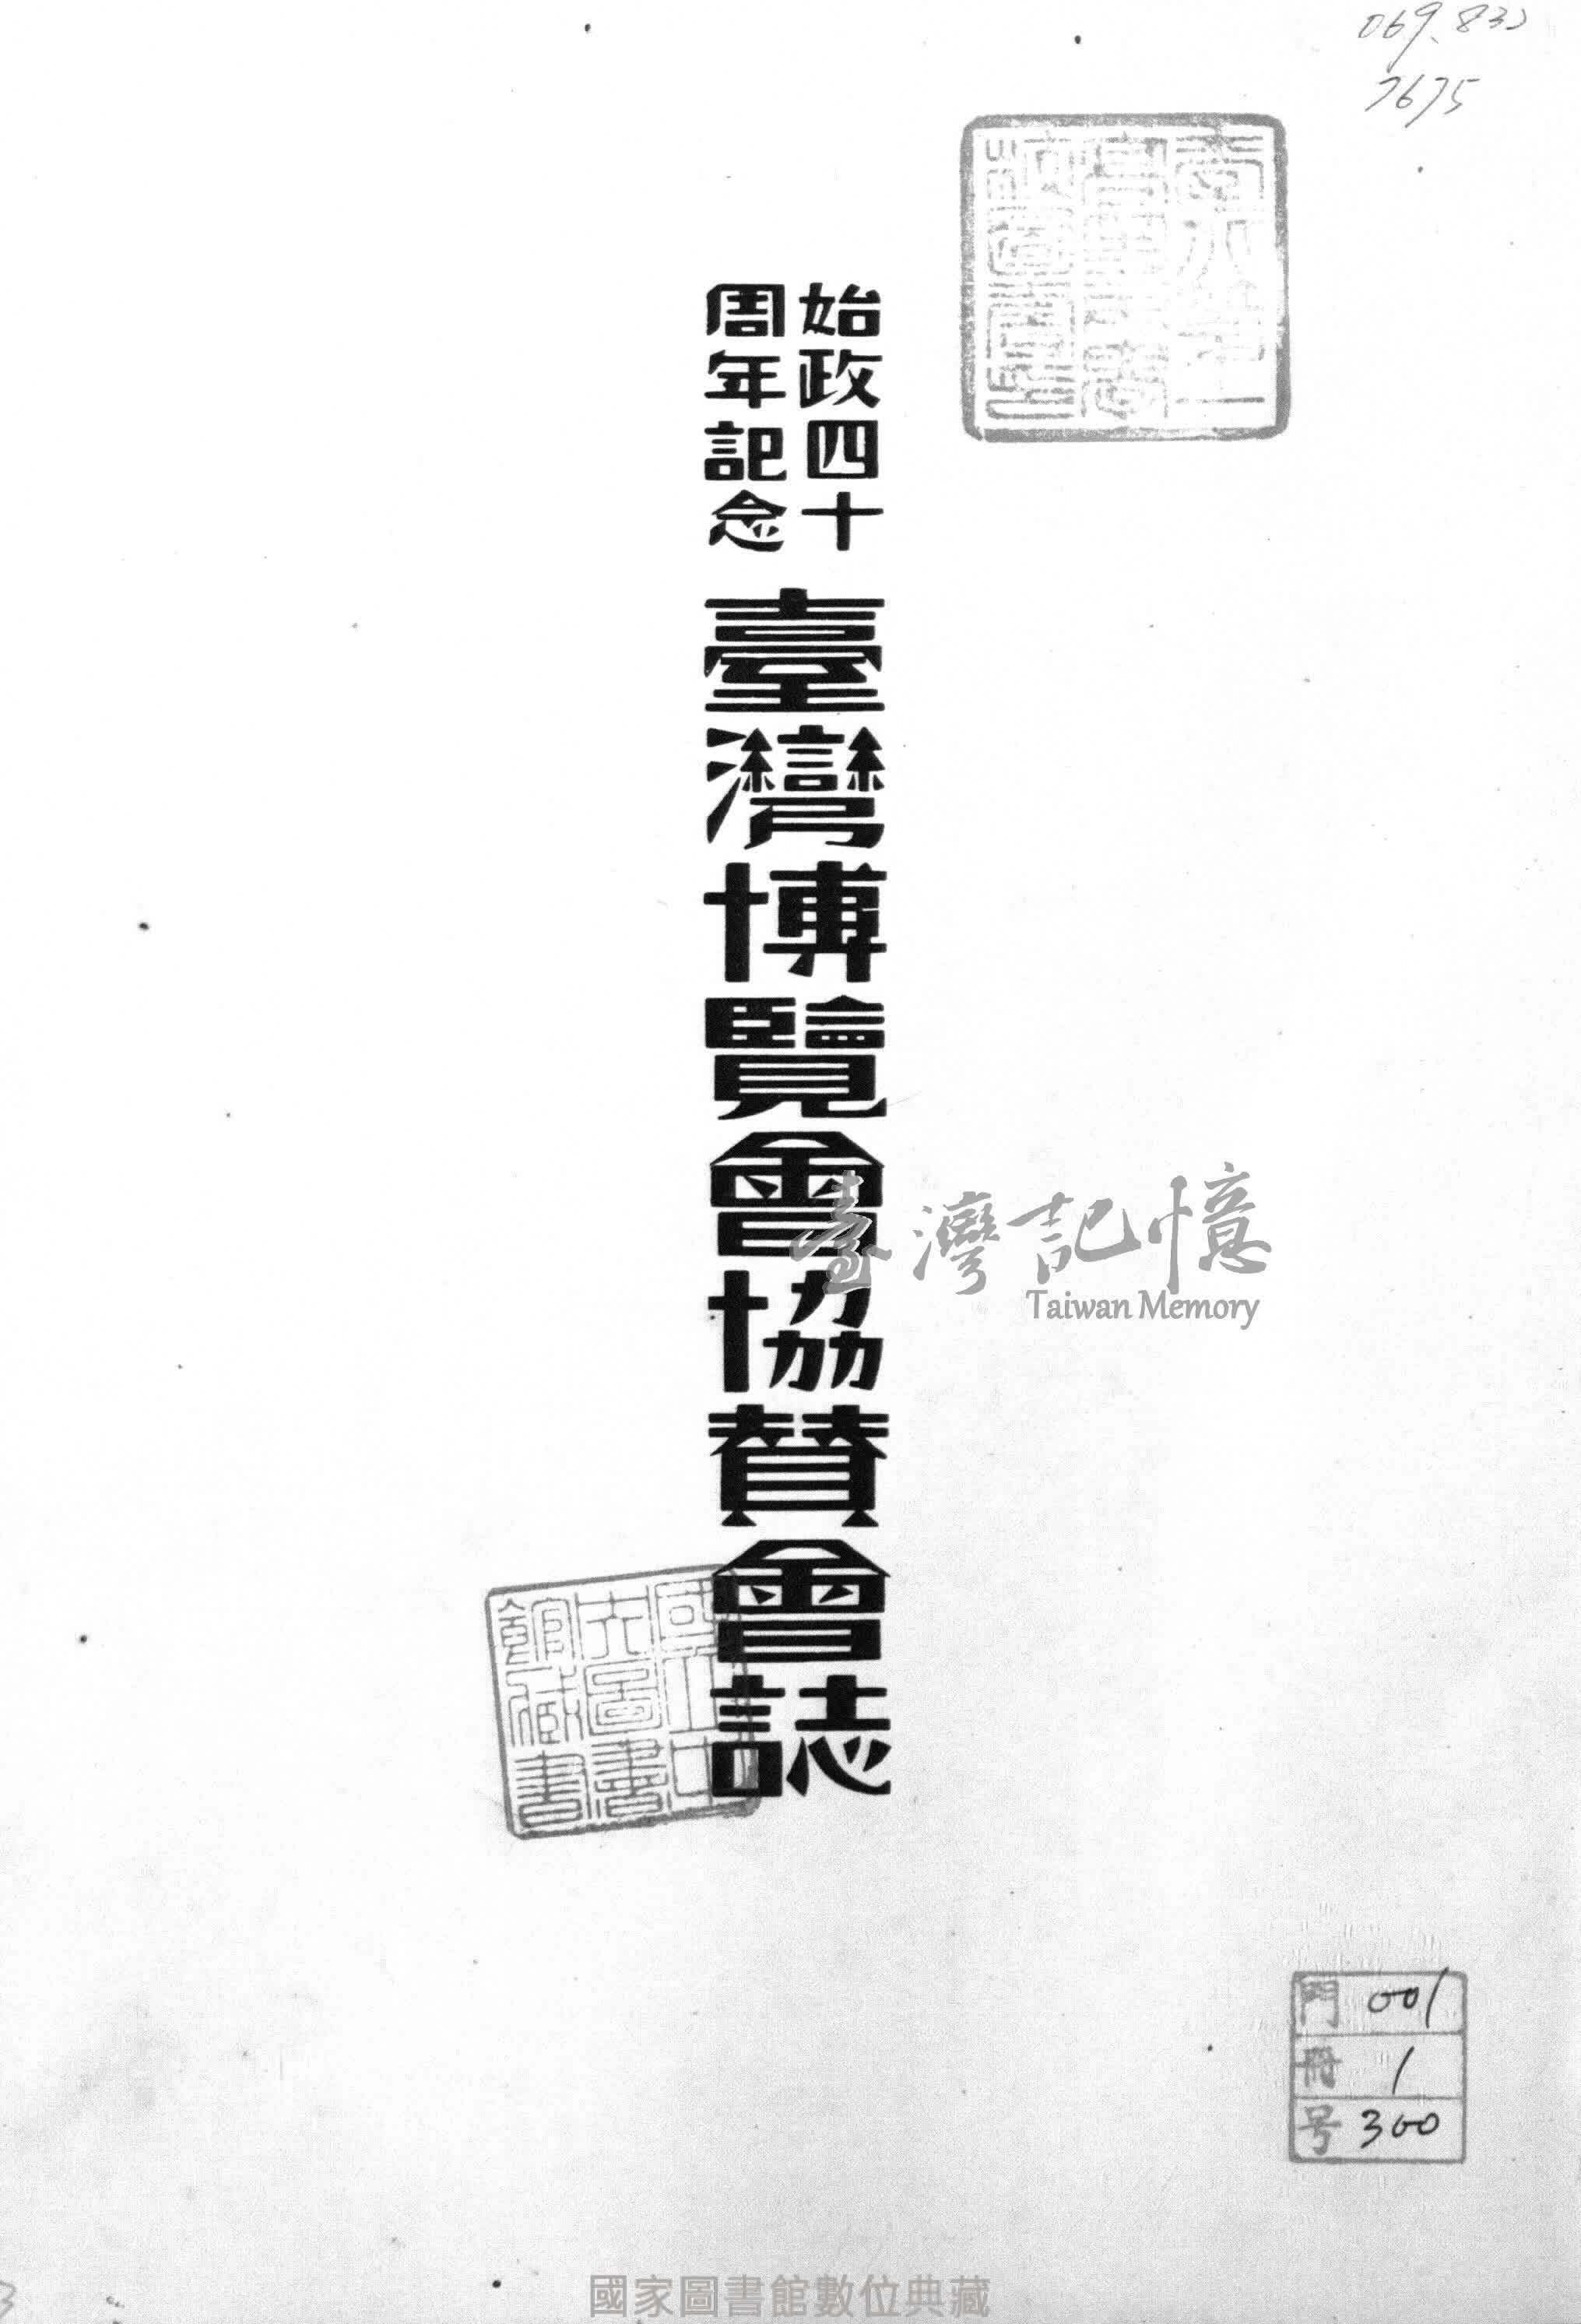 069.832
7675
始政四十
周年記念
臺灣博覽會協贊會誌
臺灣記憶
Taiwan Memory
國立中
央圖書
館藏書
門 001
冊 1
号 300
國家圖書館數位典藏